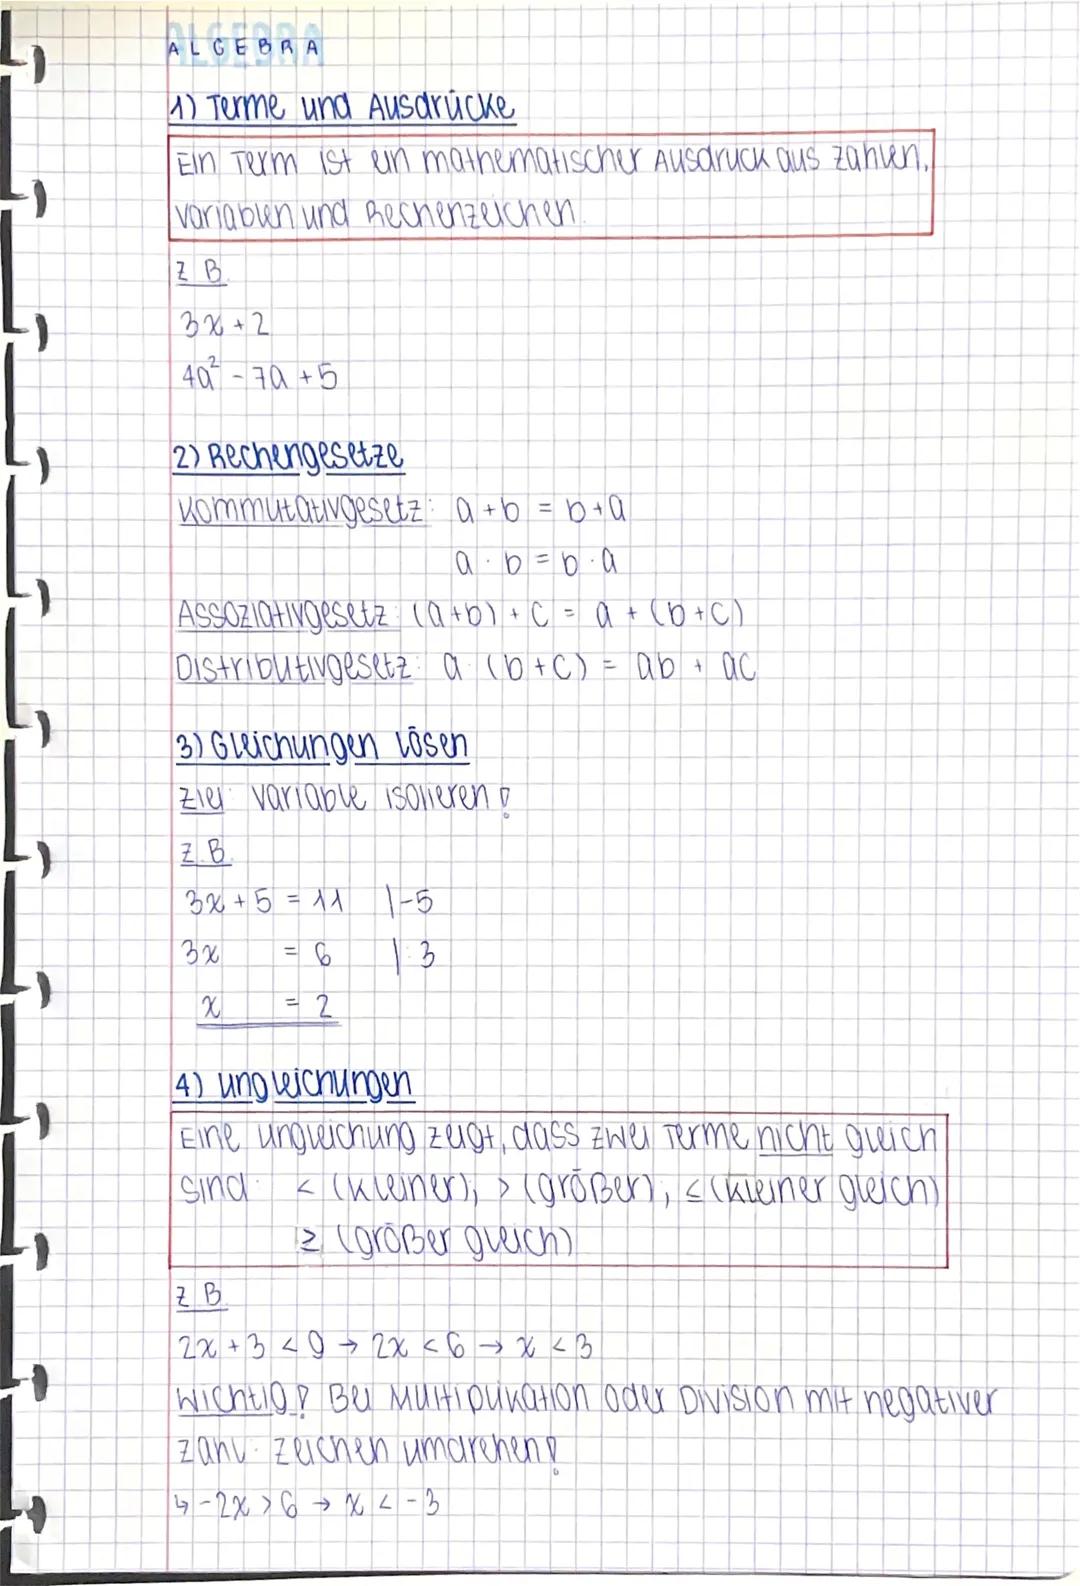 ALGEBRA
1) Terme und Ausdrücke
Ein Term ist ein mathematischer Ausdruck aus Zahlen,
Variablen und Rechenzeichen.
z.B.
3x + 2
4a² - 7a + 5
2) Rechengesetze
Kommutativgesetz: a + b = b + a
a · b = b · a
Assoziativgesetz: (a+b) + c = a + (b+c)
Distributivgesetz: a · (b+c) = ab + ac
3) Gleichungen lösen
Ziel: Variable isolieren!
z.B.
3x + 5 = 11 |-5
3x = 6 |:3
x = 2
4) Ungleichungen
Eine Ungleichung zeigt, dass zwei Terme nicht gleich
sind: < (kleiner); > (größer); ≤ (kleiner gleich)
≥ (größer gleich)
z.B.
2x + 3 < 9 → 2x < 6 → x < 3
Wichtig! Bei Multiplikation oder Division mit negativer
Zahl: Zeichen umdrehen!
↳ -2x > 6 → x < -3